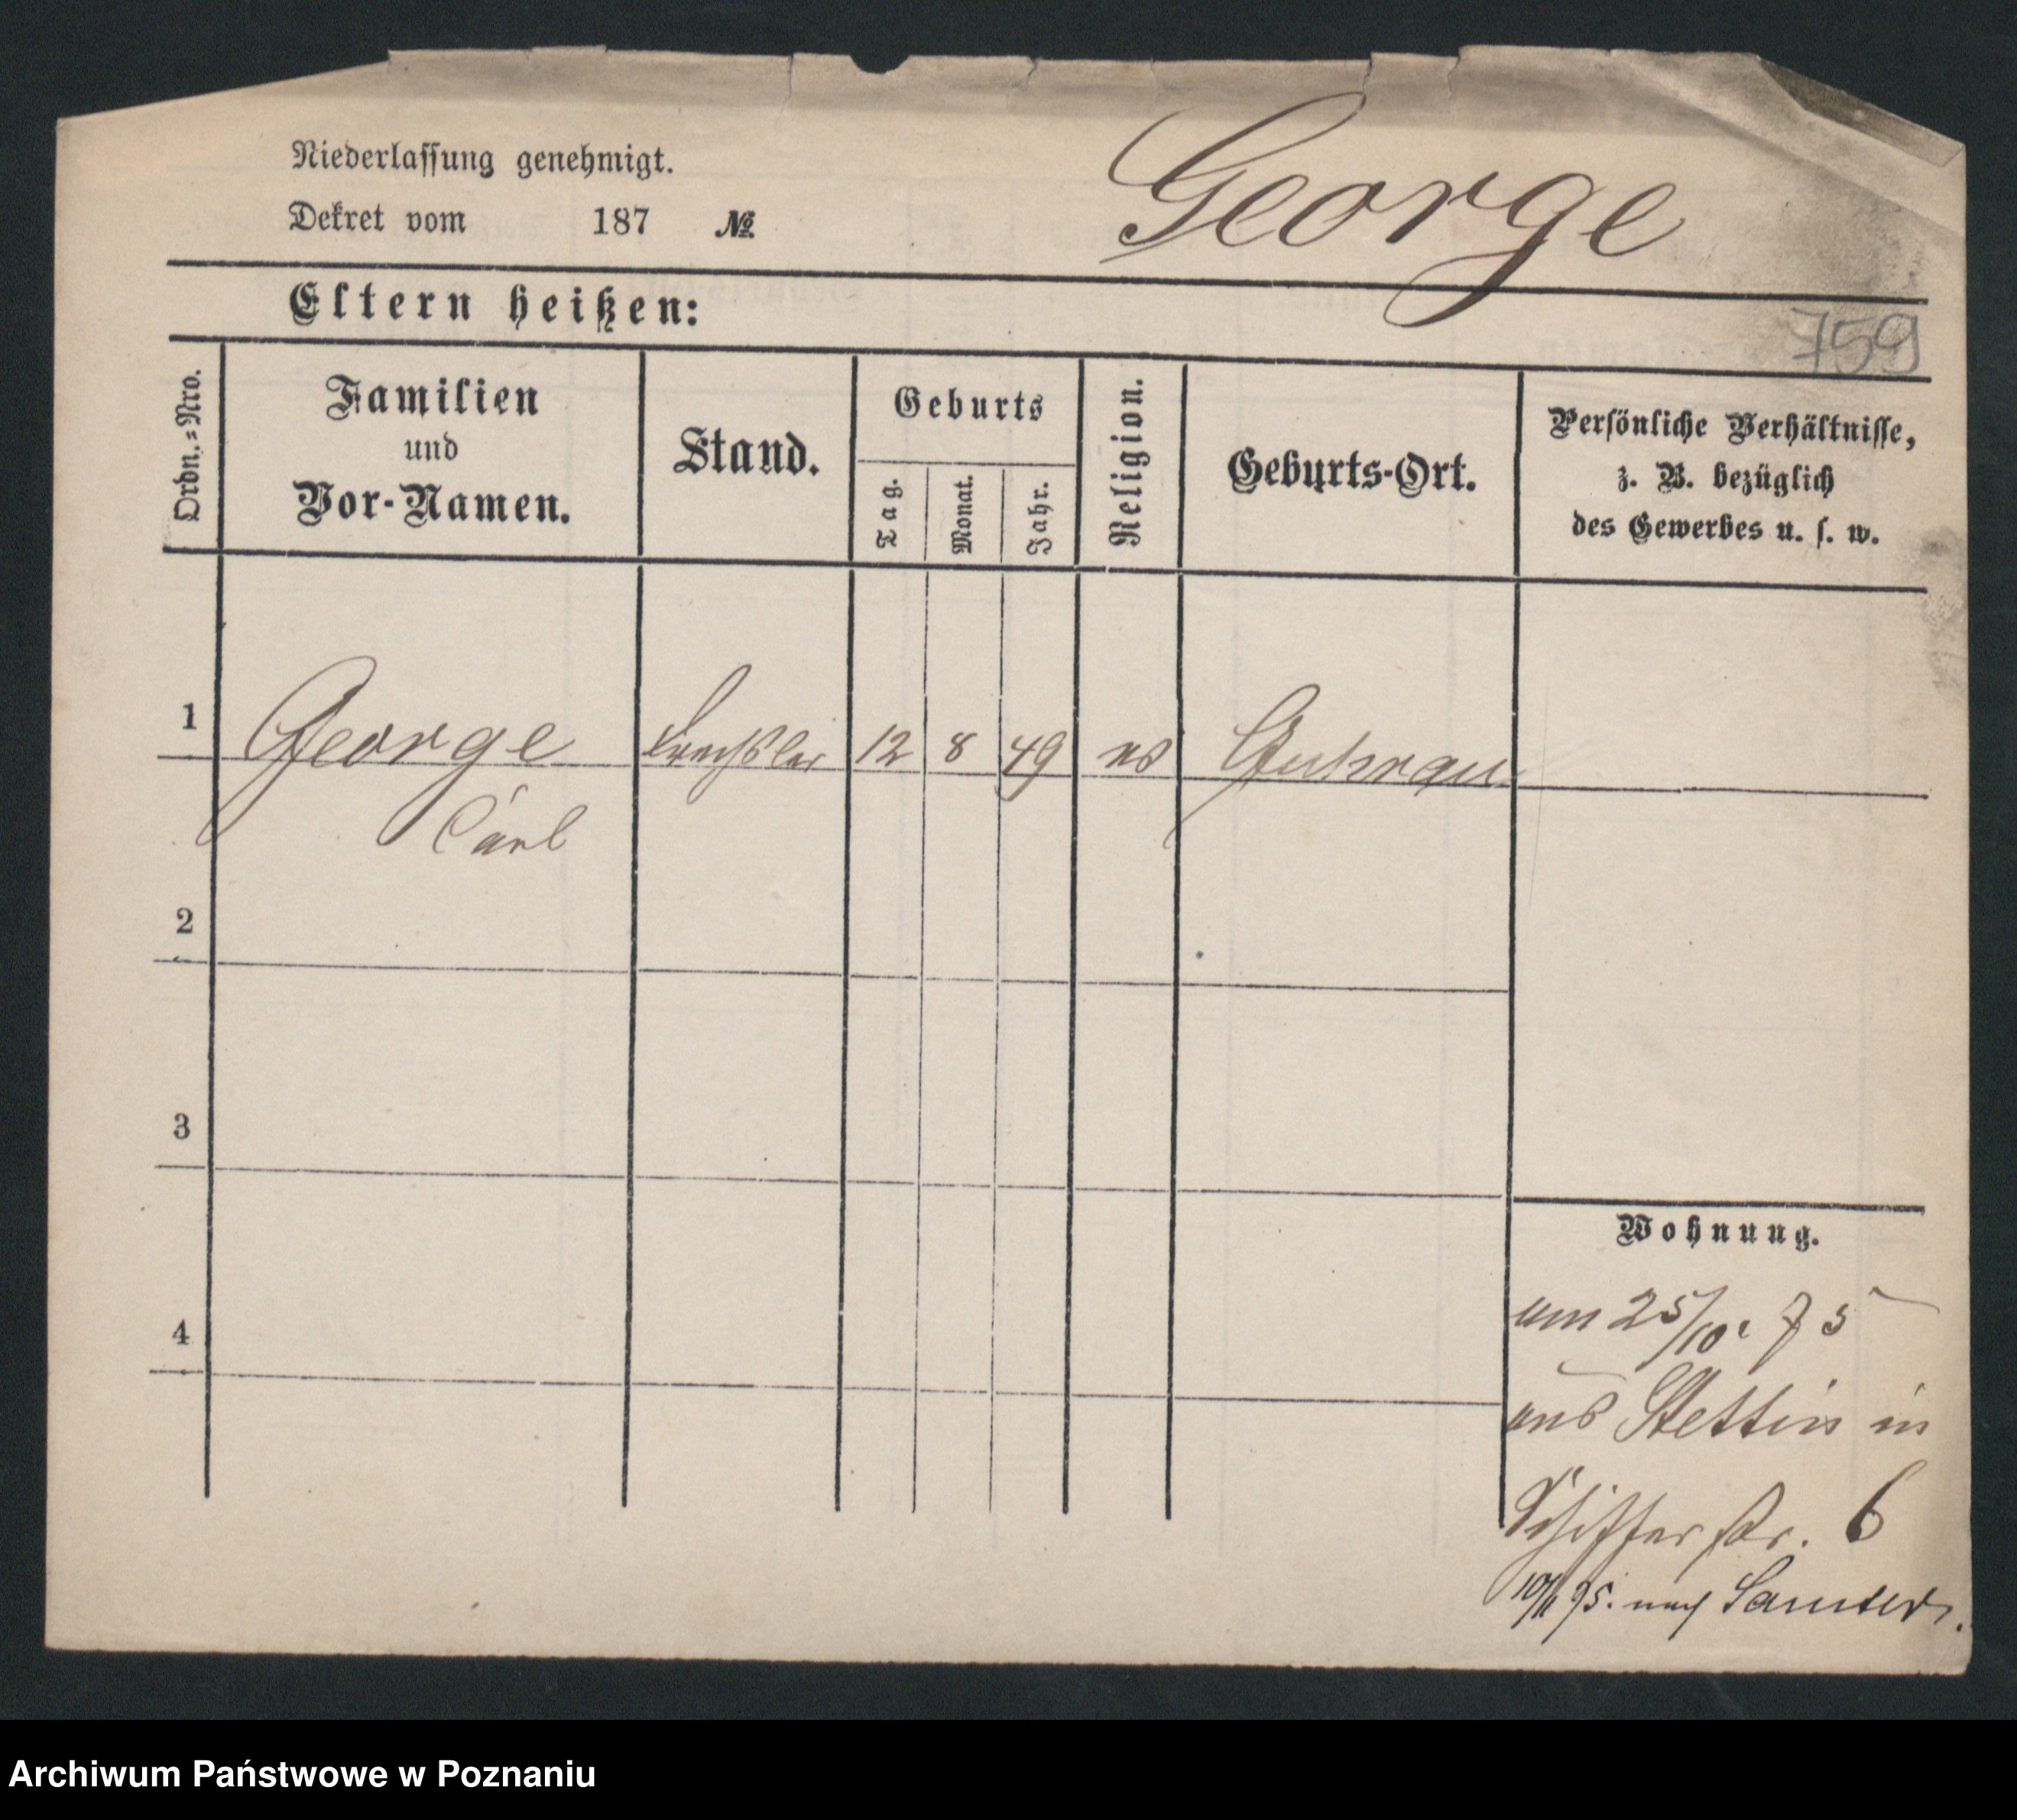 Niederlassung genehmigt.
Dekret vom 187 №
George
Eltern heißen:
759
Ordn.=Nro.
Familien
und
Vor-Namen.
Stand.
Geburts
Tag.
Monat.
Jahr.
Religion.
Geburts-Ort.
Persönliche Verhältnisse,
z. B. bezüglich
des Gewerbes u. s. w.
1 George 12 8 49 Guhrau
Carl
2
3
4
Wohnung.
am 25/10. 75
aus Stettin in
Schifferstr. 6
10/11 75. nach Samter.
Archiwum Państwowe w Poznaniu